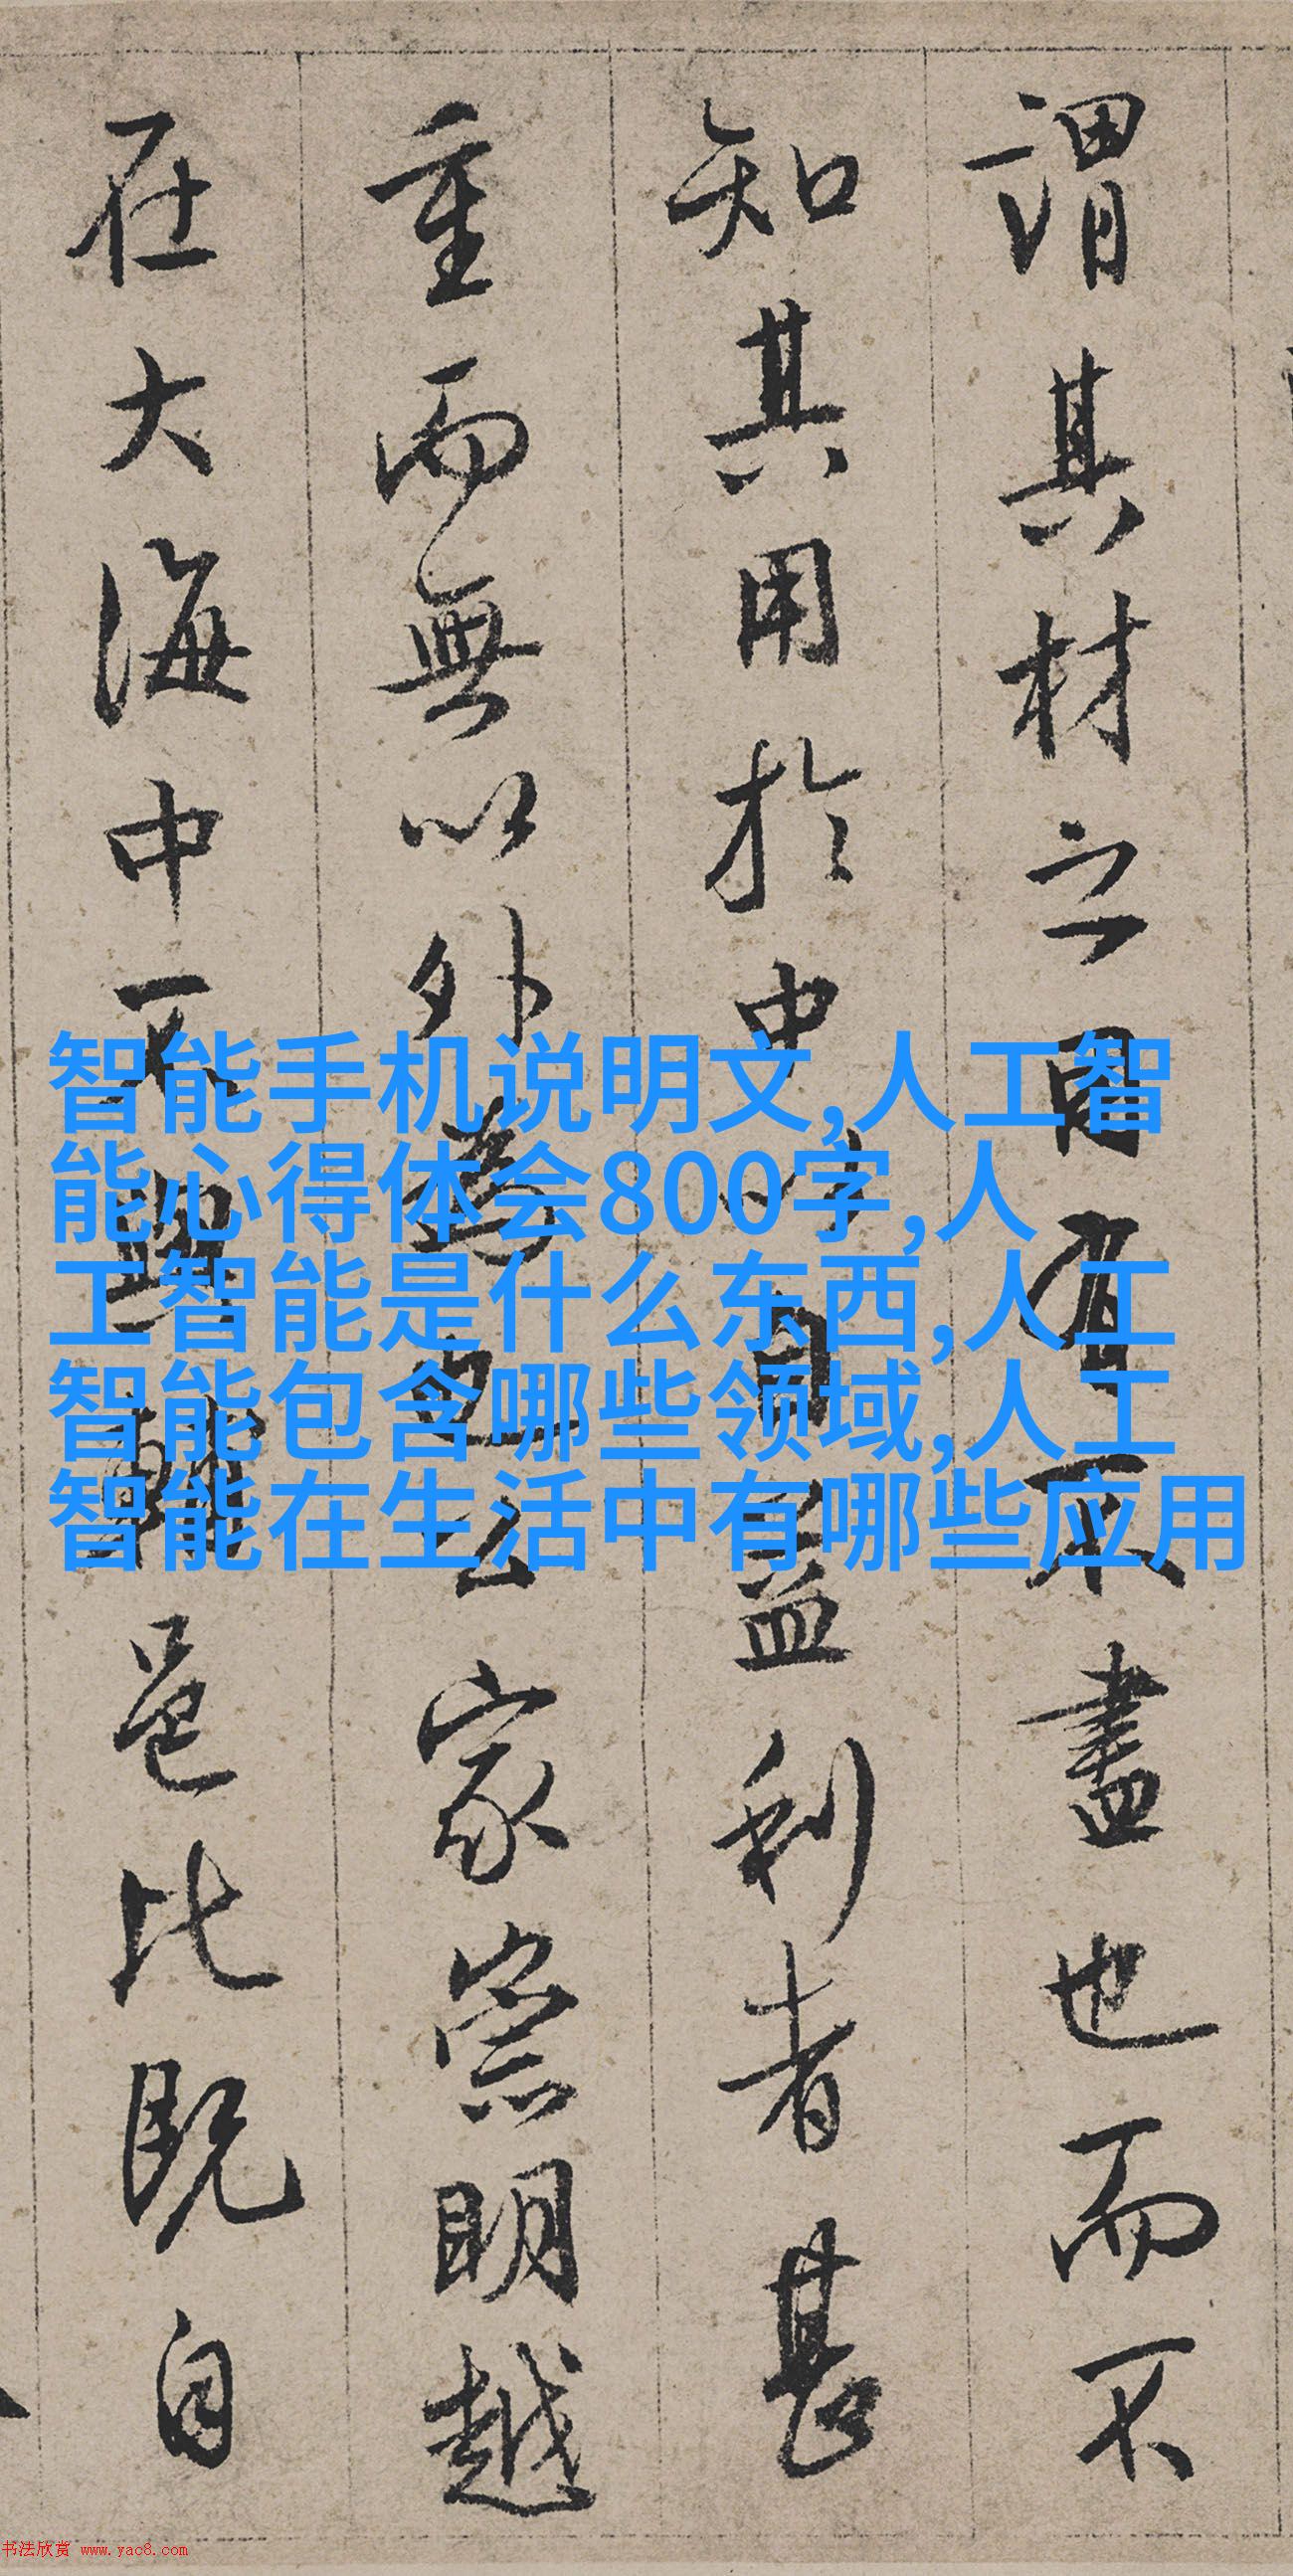 謂其材之用有不盡也而不
知其用於中以自益利者甚
重而無以外為也公家崇明越
在大海中不與邑比既自
智能手机说明文,人工智
能心得体会800字,人
工智能是什么东西,人工
智能包含哪些领域,人工
智能在生活中有哪些应用
书法欣赏 www.yac8.com